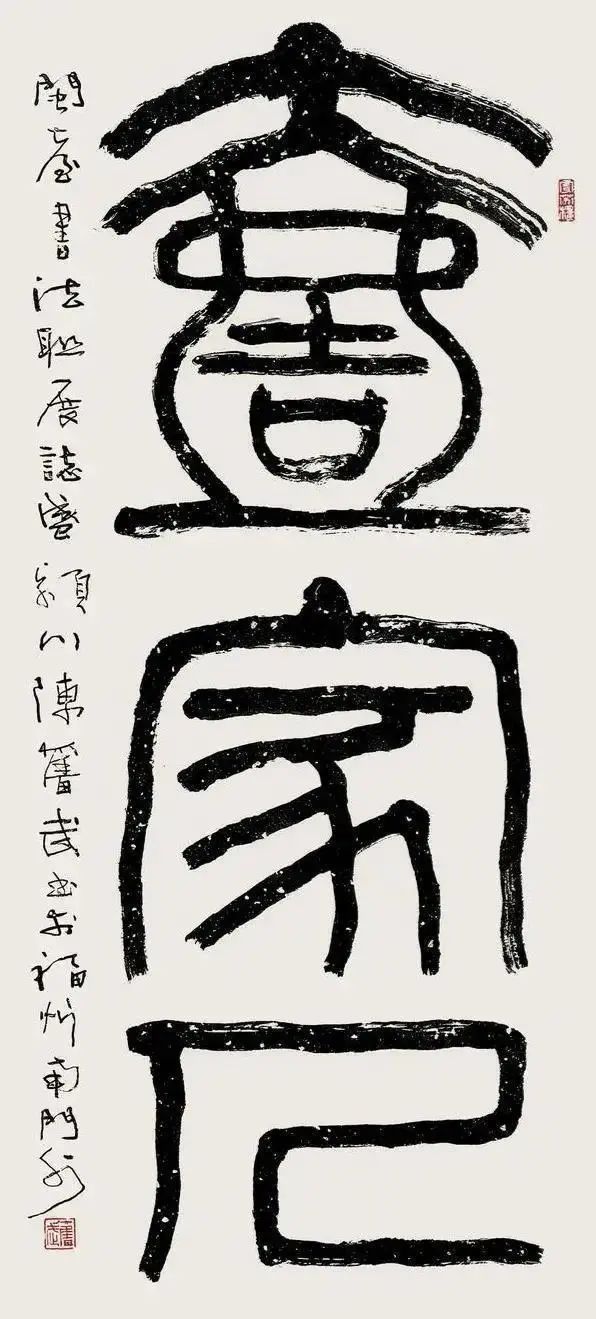 壹家人
閩臺書法聯展誌盛 潁川陳奮武書於福州南門外